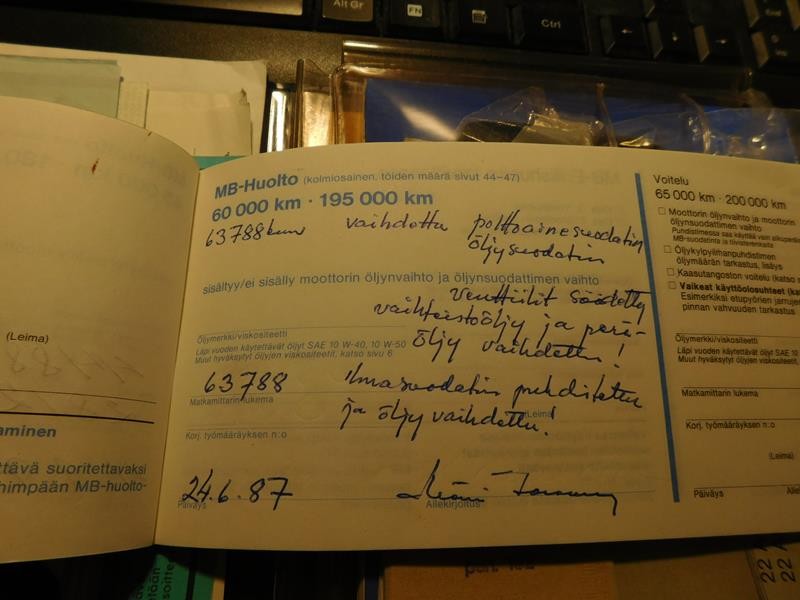 Alt Gr
FN
Ctrl
MB-Huolto (kolmiosainen, töiden määrä sivut 44-47)
60 000 km · 195 000 km
63788 km vaihdettu polttoainesuodatin
öljysuodatin
sisältyy/ei sisälly moottorin öljynvaihto ja öljynsuodattimen vaihto
Venttiilit säädetty
vaihteistoöljy ja perä-
öljy vaihdettu!
Öljymerkki/viskositeetti
Läpi vuoden käytettävät öljyt SAE 10 W-40, 10 W-50
Muut hyväksytyt öljyjen viskositeetit, katso sivu 6
63788 Ilmasuodatin puhdistettu
Matkamittarin lukema
ja öljy vaihdettu!
(Leima)
Korj. työmääräyksen n:o
24.6.87
Päiväys
Allekirjoitus
(Leima)
aminen
ttävä suoritettavaksi
himpään MB-huolto-
Voitelu
65 000 km · 200 000 km
Moottorin öljynvaihto ja moottorin
öljynsuodattimen vaihto
Puhdistimessa saa käyttää vain alkuperäi
MB-suodatinta ja tiivisterenkaita
Öljykylpyilmanpuhdistimen
öljymäärän tarkastus, lisäys
Kaasutangoston voitelu (katso s
Vaikeat käyttöolosuhteet (ka
Esimerkiksi etupyörien jarrujen
pinnan vahvuuden tarkastus
Öljymerkki/viskositeetti
Läpi vuoden käytettävät öljyt SAE
Muut hyväksytyt öljyjen viskositee
Matkamittarin lukema
Korj. työmääräyksen n:o
(Leima)
Päiväys
22 A
22 A